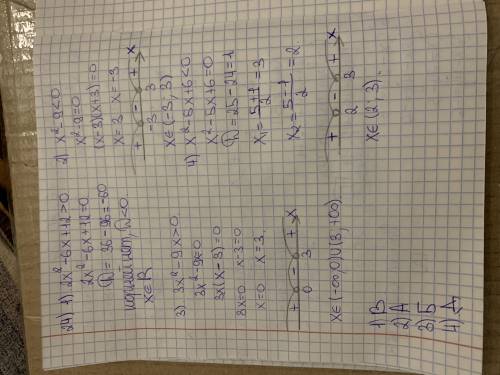 24) 1) 2x²-6x+12>0
2x²-6x+12=0
D = 36-96=-60
корней нет, D<0
x∈R
2) x²-9<0
x²-9=0
(x-3)(x+3)=0
x=3 x=-3
+ - + x
-3 3
x∈(-3, 3)
3) 3x²-9x>0
3x²-9x=0
3x(x-3)=0
3x=0 x-3=0
x=0 x=3
+ - + x
0 3
x∈(-∞,0)U(3,+∞)
4) x²-5x+6<0
x²-5x+6=0
D=25-24=1
x₁=5+1/2=3
x₂=5-1/2=2
+ - + x
2 3
x∈(2, 3).
1) В
2) А
3) Б
4) Д